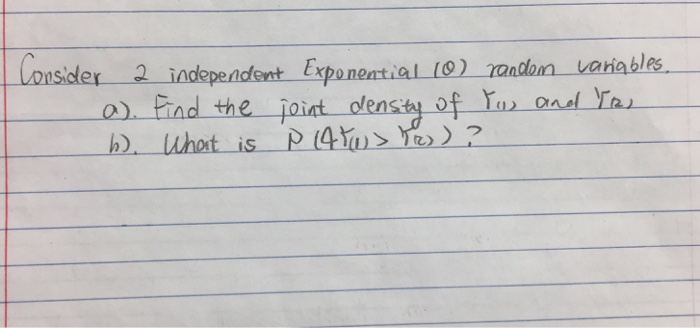 Consider 2 independent Exponential (θ) random variables.
a). Find the joint density of Y(1) and Y(2)
b). What is P(4Y(1) > Y(2))?